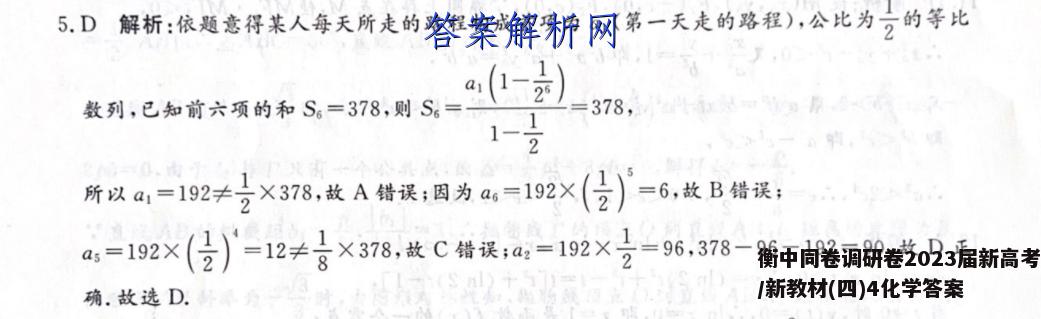 5.D 解析:依题意得某人每天所走的路程 成 项为 (第一天走的路程),公比为1/2的等比
答案解析网
数列,已知前六项的和 S₆=378,则 S₆=a₁(1-1/2⁶)/(1-1/2)=378,
所以 a₁=192≠1/2×378,故 A 错误;因为 a₆=192×(1/2)⁵=6,故 B 错误;
a₅=192×(1/2)⁴=12≠1/8×378,故 C 错误;a₂=192×1/2=96,378-96-192=90,故 D 正
确.故选 D.
衡中同卷调研卷2023届新高考
/新教材(四)4化学答案